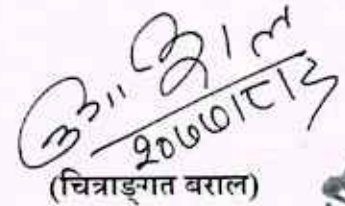 २०७७।८।३
(चित्राङ्गत बराल)